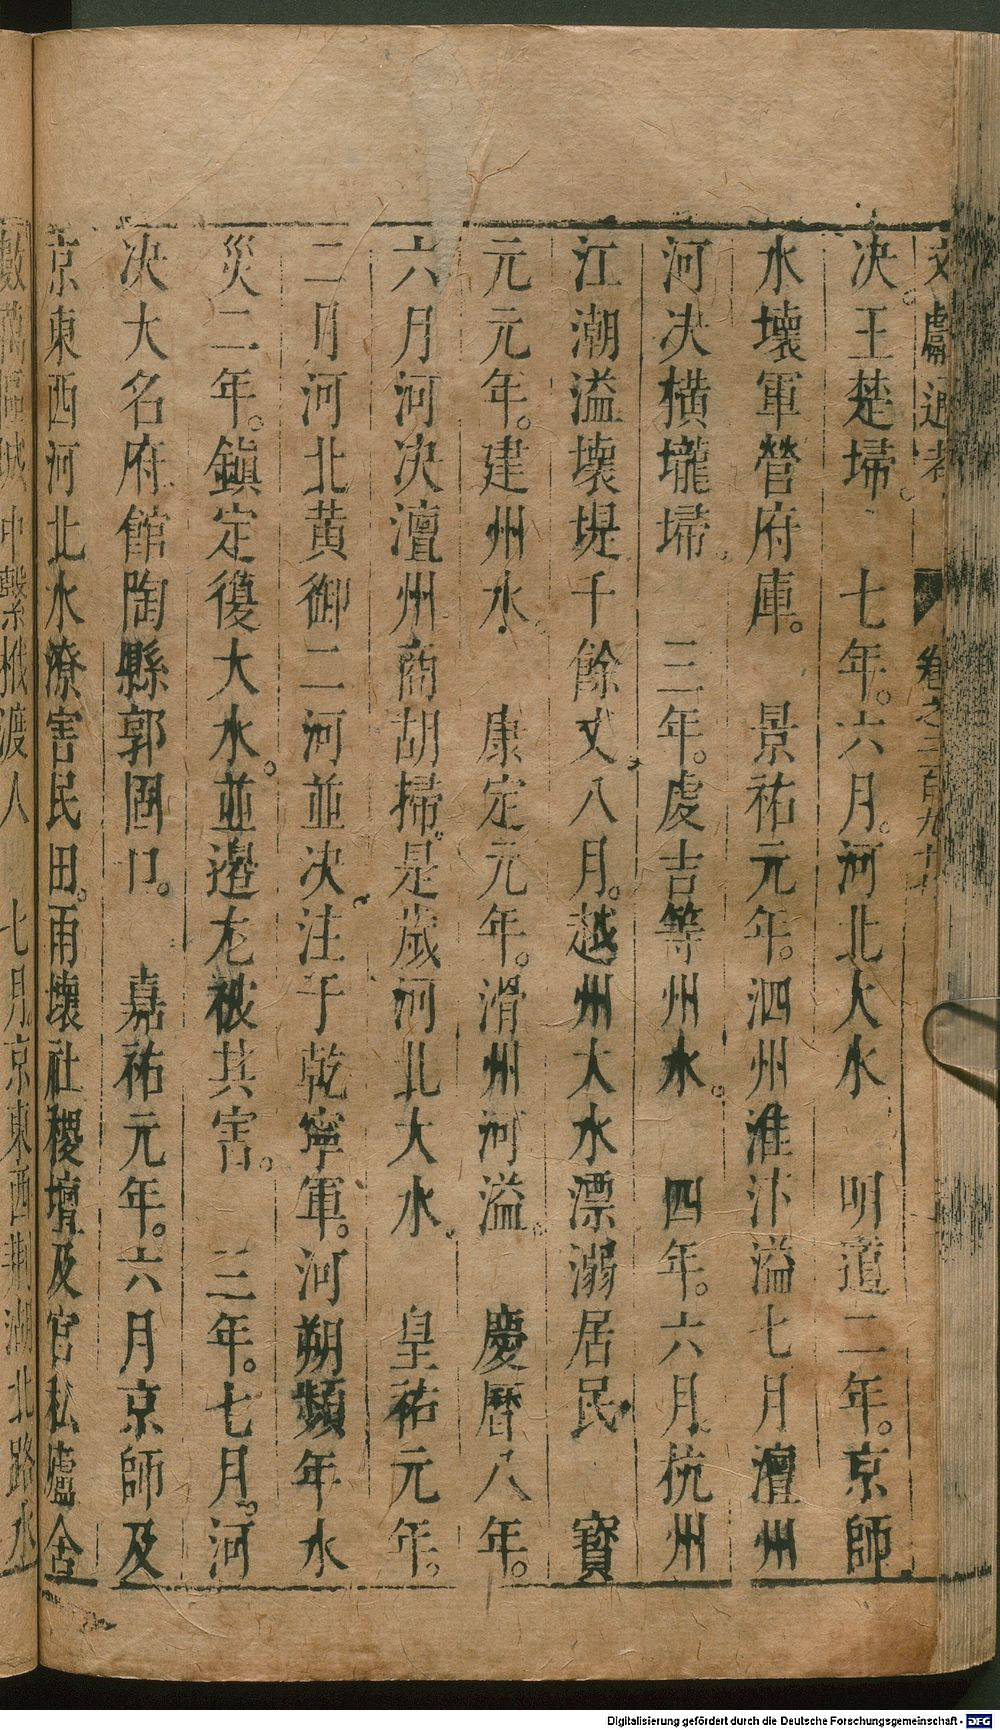 文獻通考 卷之二百九十六
决。王楚埽。 七年。六月。河北大水 明道二年。京師
水壞軍營府庫。 景祐元年。泗州淮汴溢七月澶州
河决橫壠埽。 三年。虔吉等州水。 四年。六月杭州
江潮溢壞堤千餘丈八月。越州大水漂溺居民 寳
元元年。建州水 康定元年。滑州河溢。 慶曆八年。
六月河决澶州商胡掃。是歲河北大水。 皇祐元年。
二月河北黄御二河並决注于乾寧軍。河朔頻年水
災二年。鎮定復大水。並邊尤被其害。 三年。七月。河
决大名府館陶縣郭固口。 嘉祐元年。六月京師及
京東西河北水潦害民田。雨壞社稷壇及官私廬舍
數萬區城中繫栰渡人 七月。京東西荆湖北路水
Digitalisierung gefördert durch die Deutsche Forschungsgemeinschaft - DFG